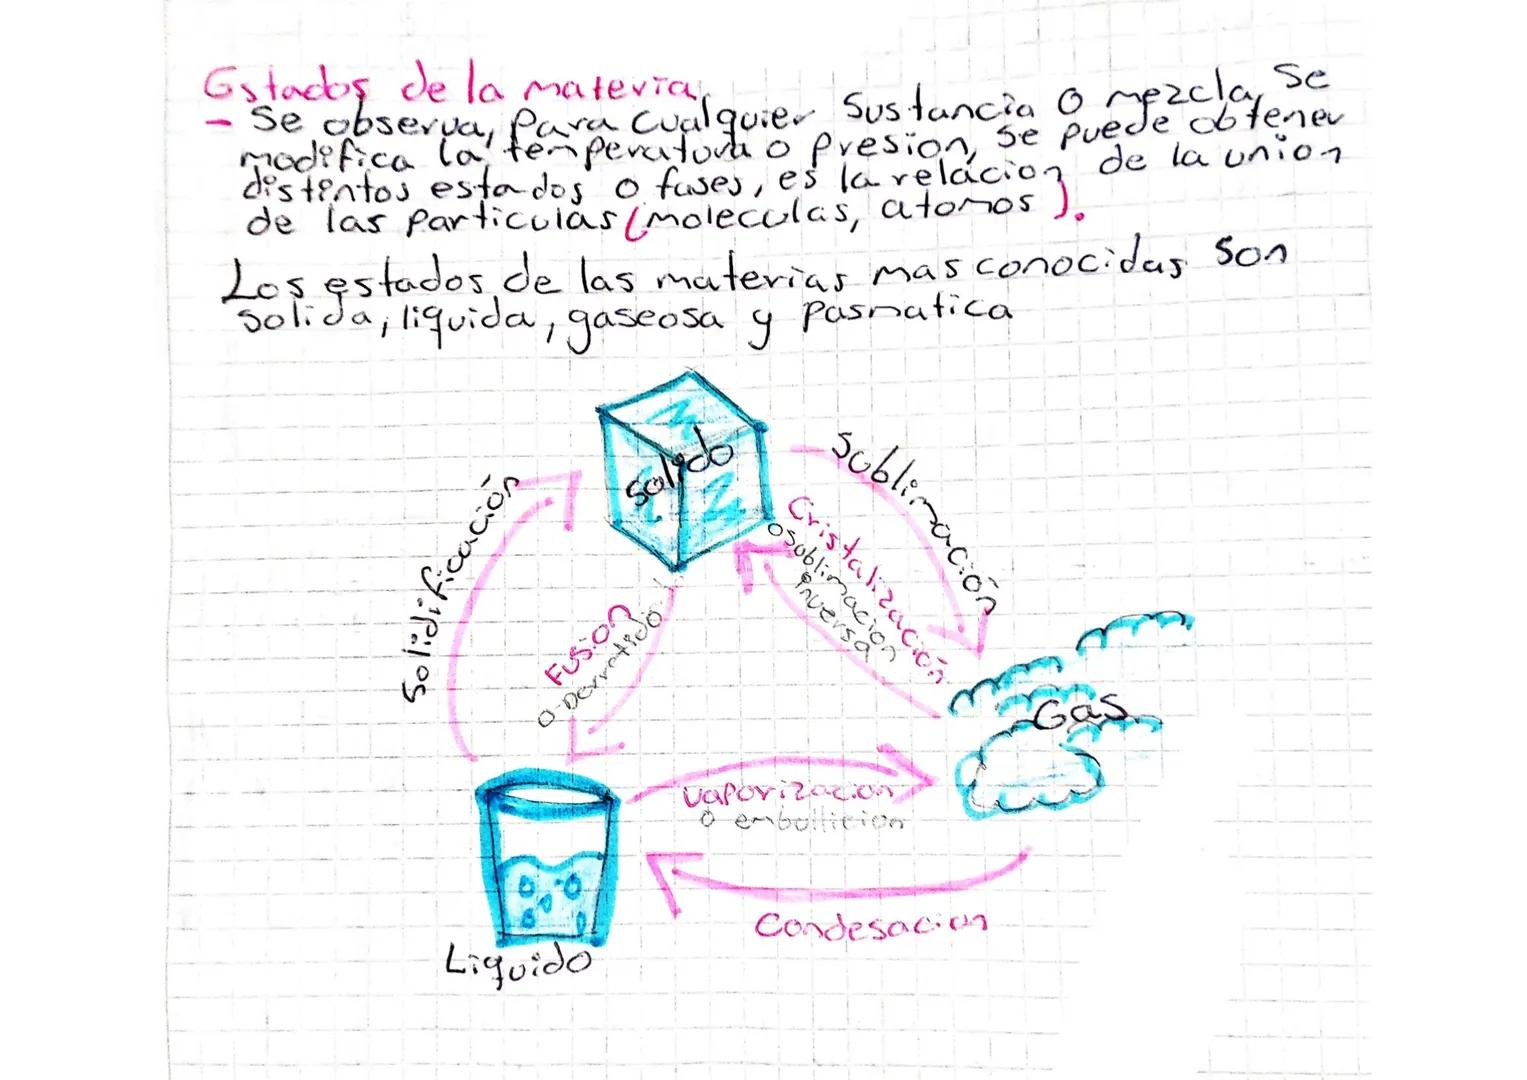 Estados de la materia
- Se observa, para cualquier sustancia o mezcla, se
modifica la temperatura o presion, se puede obtener
distintos estados o fases, es la relacion de la union
de las particulas (moleculas, atomos).
Los estados de las materias mas conocidas son
solida, liquida, gaseosa y pasmatica
Solido
Sublimación
Solidificación
Cristalización
o sublimacion
inversa
Fusion
o Derretido
Gas
vaporizacion
o embollicion
Condesacion
Liquido